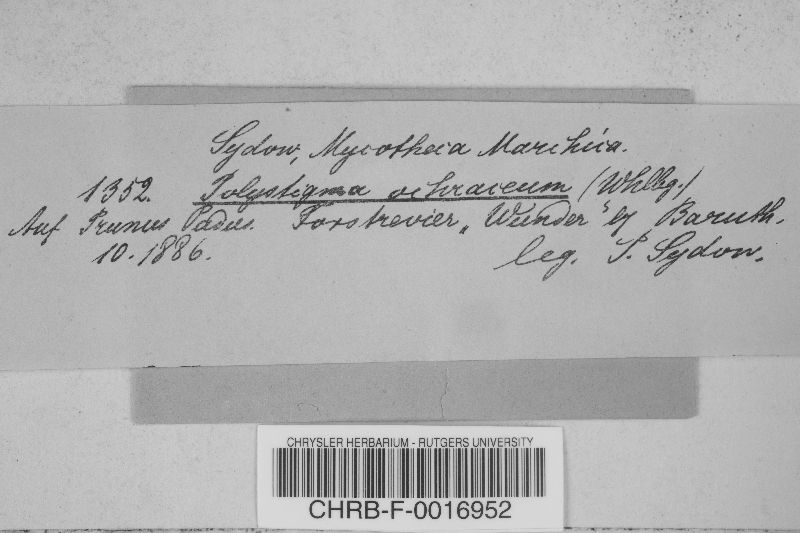 Sydow, Mycotheca Marchica.
1352. Polystigma ochraceum (Whlbg.)
Auf Prunus Padus. Forstrevier „Wunder“ b/ Baruth.
10. 1886. leg. P. Sydow.
CHRYSLER HERBARIUM - RUTGERS UNIVERSITY
CHRB-F-0016952